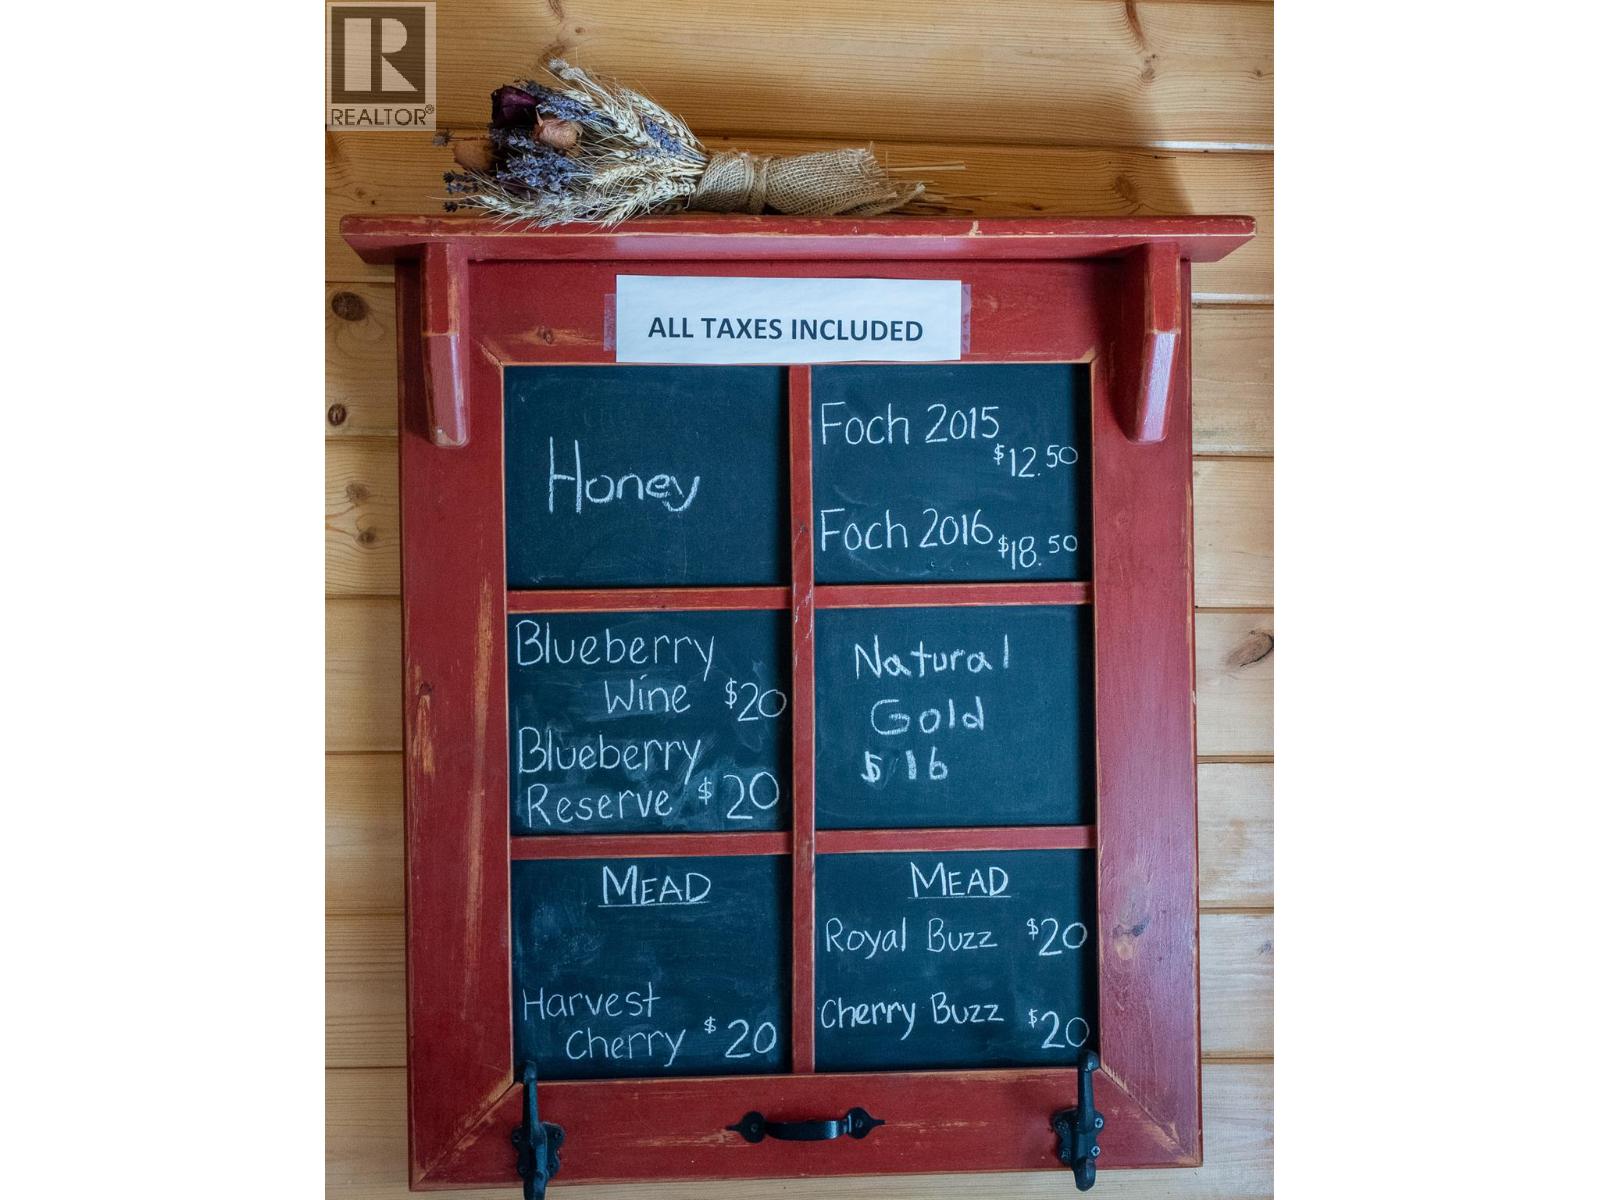 REALTOR®
ALL TAXES INCLUDED
Honey
Foch 2015
$12.50
Foch 2016 $18.50
Blueberry
Wine $20
Blueberry
Reserve $20
Natural
Gold
$16
MEAD
Harvest
Cherry $20
MEAD
Royal Buzz $20
Cherry Buzz $20